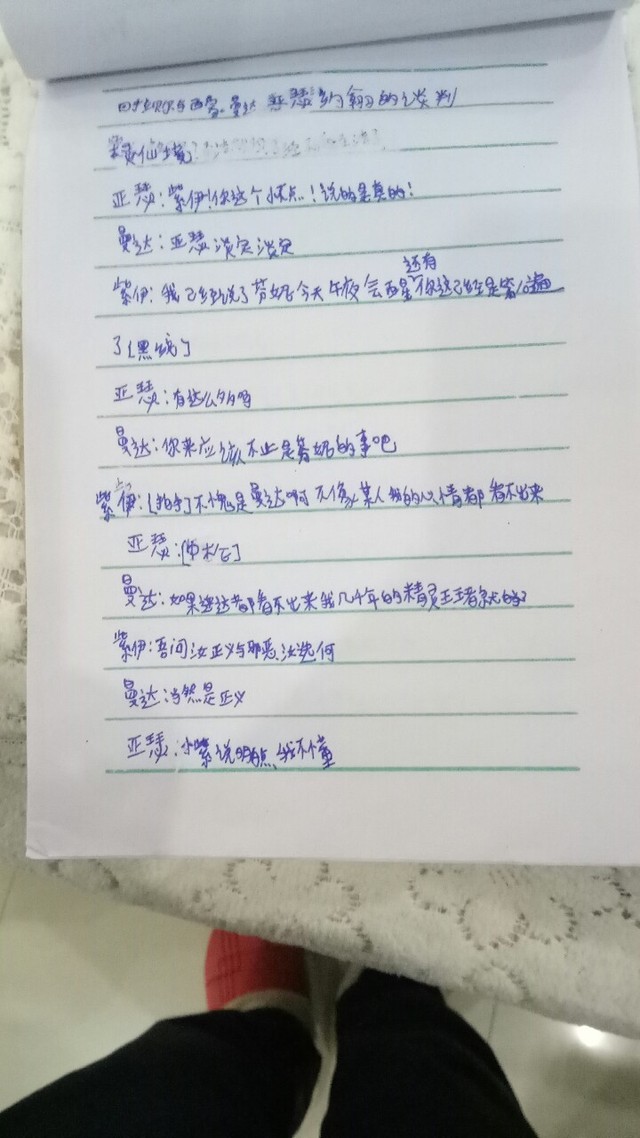 与西 曼达 亚瑟 约翰的谈判
灵仙境
亚瑟:紫伊!你这个 点!说的是真的!
曼达:亚瑟 淡定 淡定
紫伊:我已经说了 芬妮 今天 午夜 会 西星 还有 你这已经是第 遍
了[黑线]
亚瑟:有这么多吗
曼达:你来应该不止是芬妮的事吧
紫伊:[拍手]不愧是曼达啊 不像某人 我的心情都看不出来
亚瑟:
曼达:如果连这都看不出来我几千年的精灵王
紫伊:吾问汝正义与邪恶,汝选何
曼达:当然是正义
亚瑟:小紫说明点,我不懂